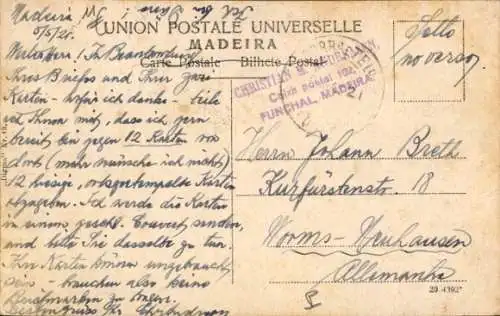 Madeira
5/5/21.
UNION POSTALE UNIVERSELLE
MADEIRA
Carte Postale Bilhete Postal
Sello
no verso
CHRISTIAN
Caixa postal 102,
FUNCHAL, MADEIRA
Werter Herr! In Beantwortung
Ihres Briefes und Ihrer zwei
Karten - wofür ich danke - teile
ich Ihnen mit, dass ich gern
bereit bin gegen 12 Karten von
dort (mehr wünsche ich nicht)
12 hiesige, ortsgestempelte Karten
abzugeben. Ich werde die Karten
in einem geschl. Couvert senden,
und bitte Sie dasselbe zu tun.
Ihre Karten können ungebraucht
sein - brauchen also keine
Briefmarken zu tragen.
Herrn Johann Breth
Kurfürstenstr. 18
Worms-Neuhausen
Allemanha
20 4392